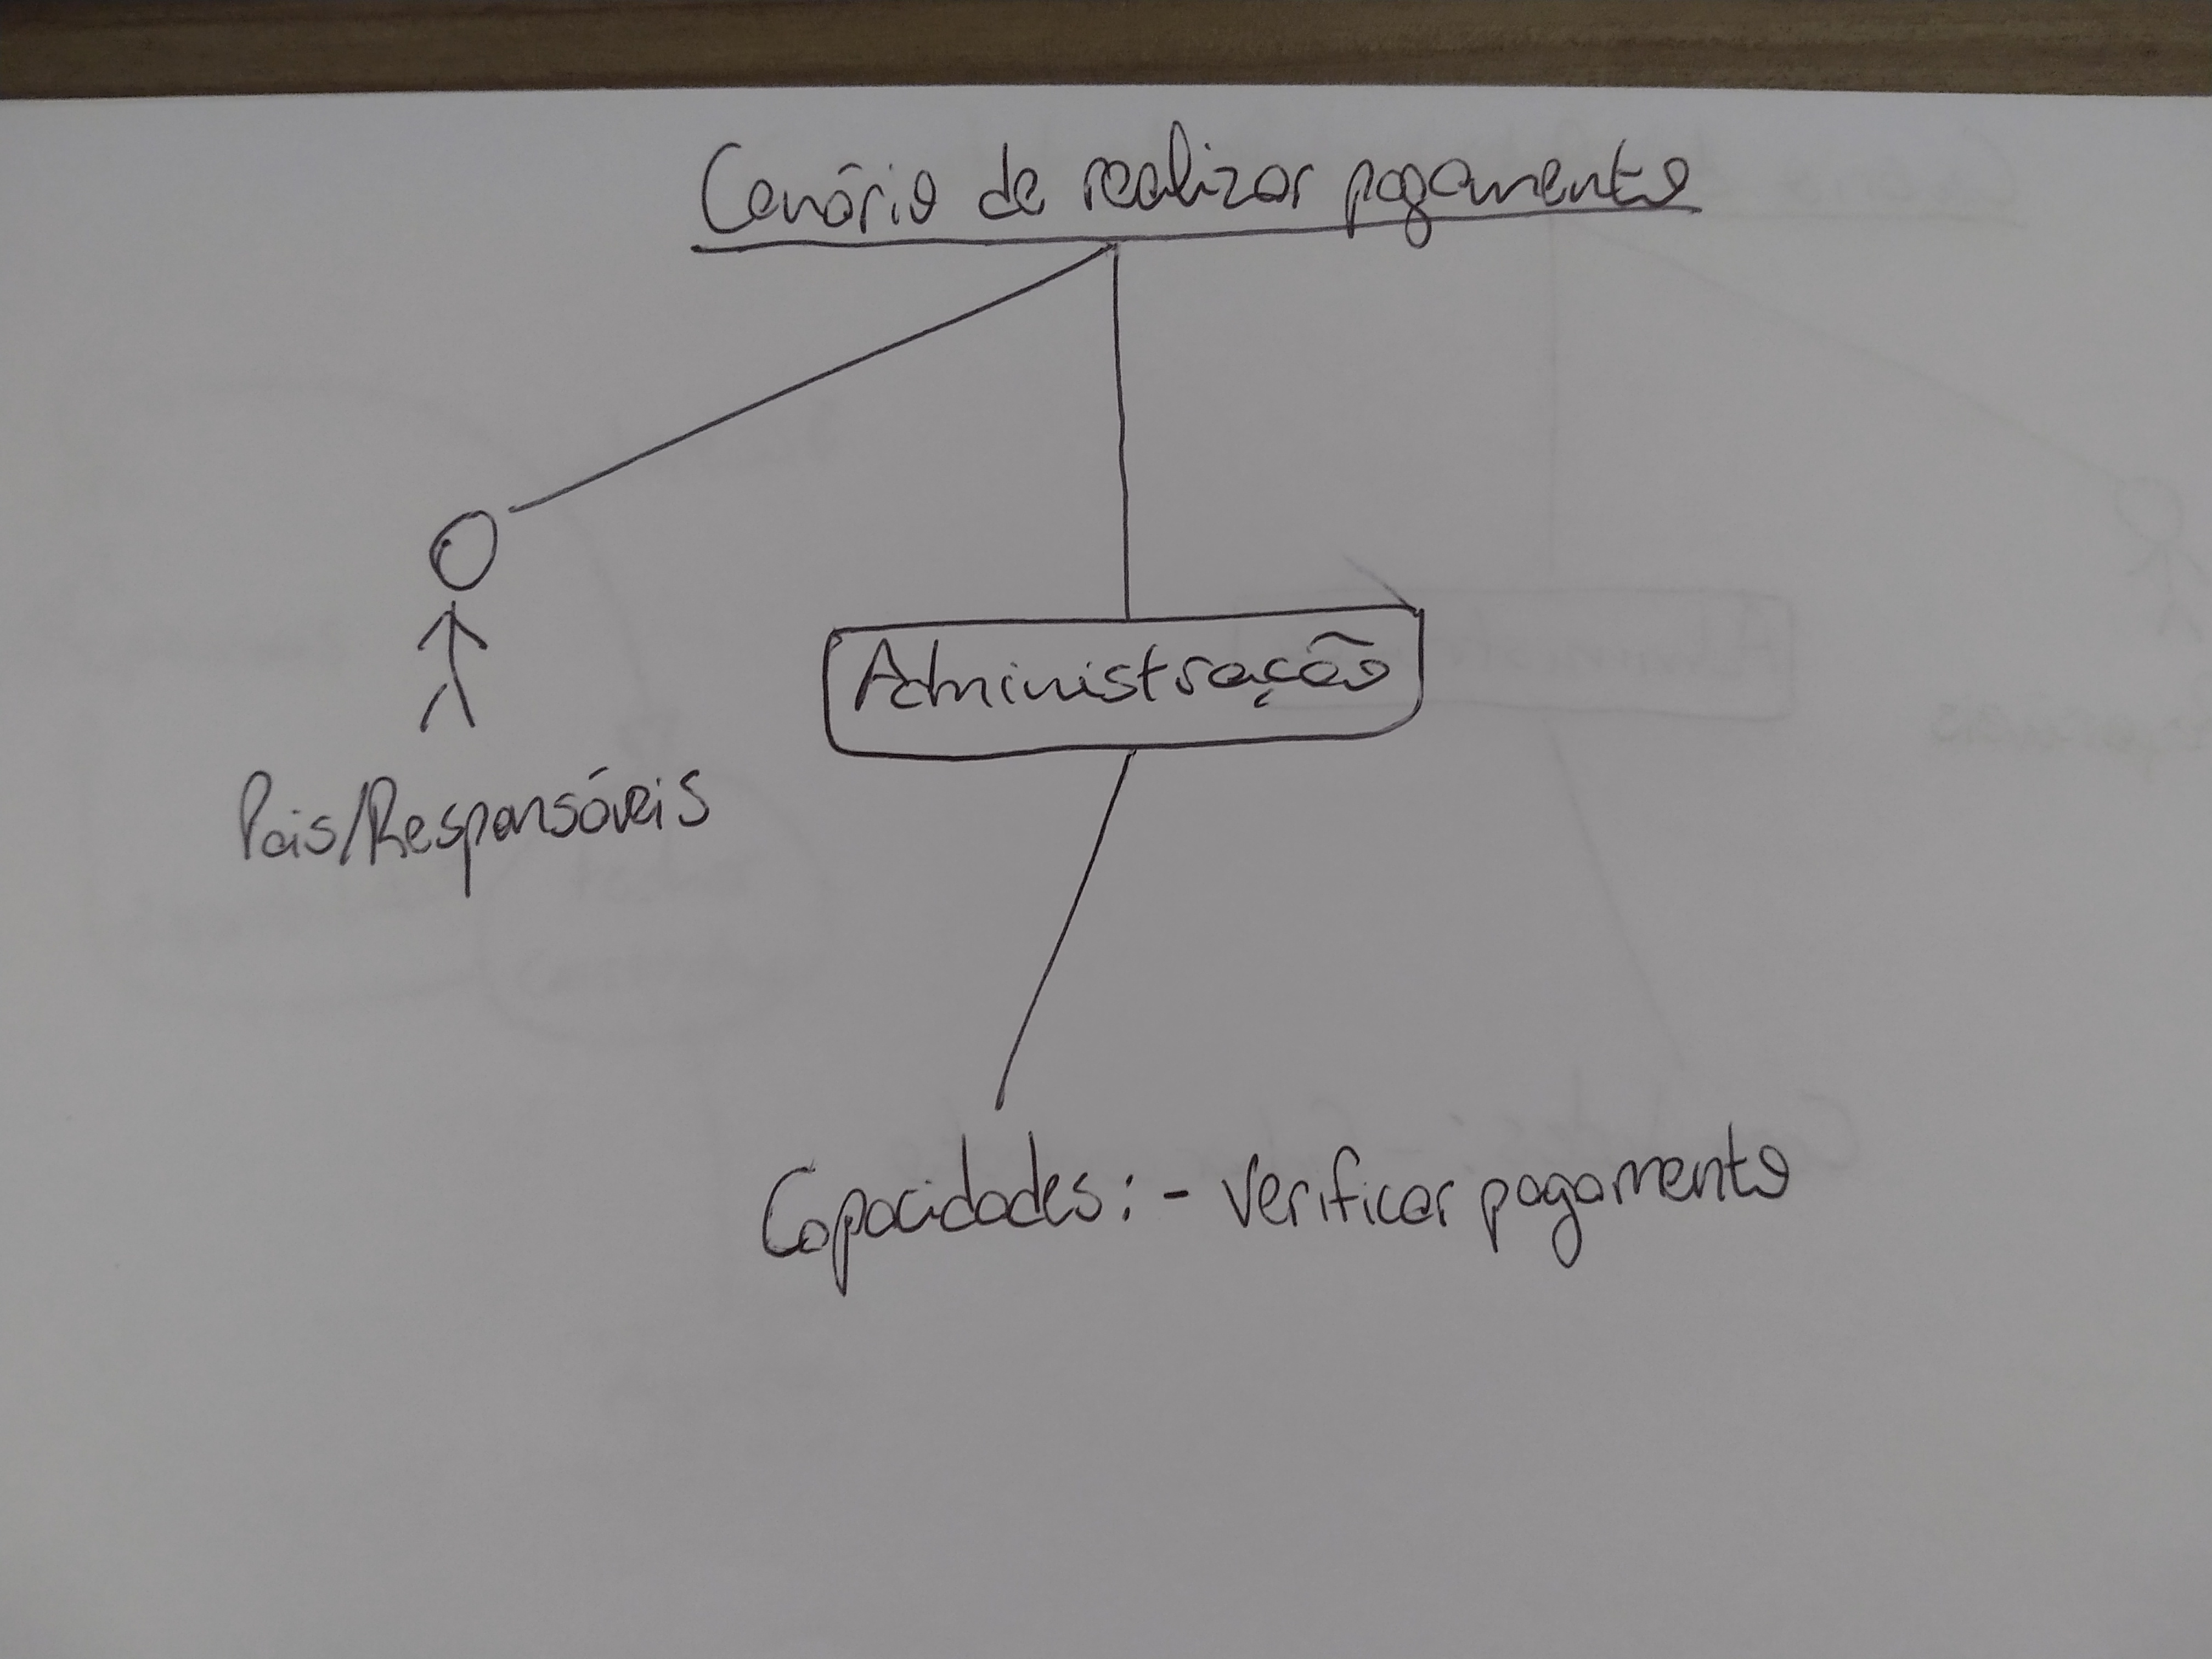 Cenário de realizar pagamento
Pais/Responsáveis
Administração
Capacidades: - Verificar pagamento